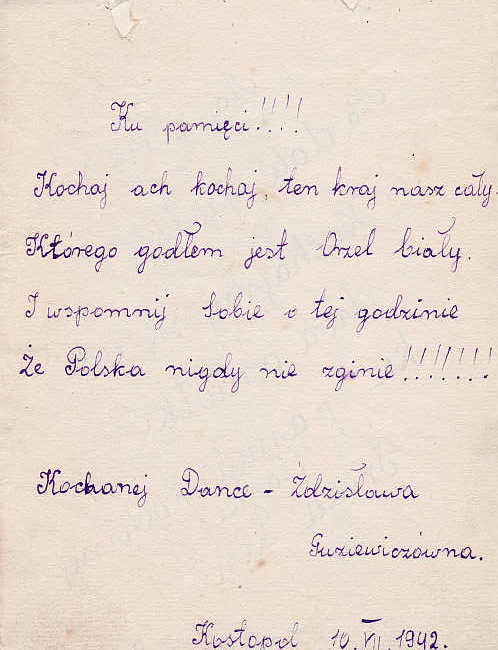 Ku pamięci!!!!
Kochaj ach kochaj, ten kraj nasz cały.
Którego godłem jest Orzeł biały.
I wspomnij sobie o tej godzinie
Że Polska nigdy nie zginie!!!!!!!
Kochanej Dance – Zdzisława
Guziewiczówna.
Kostopol 10. VII. 1942.